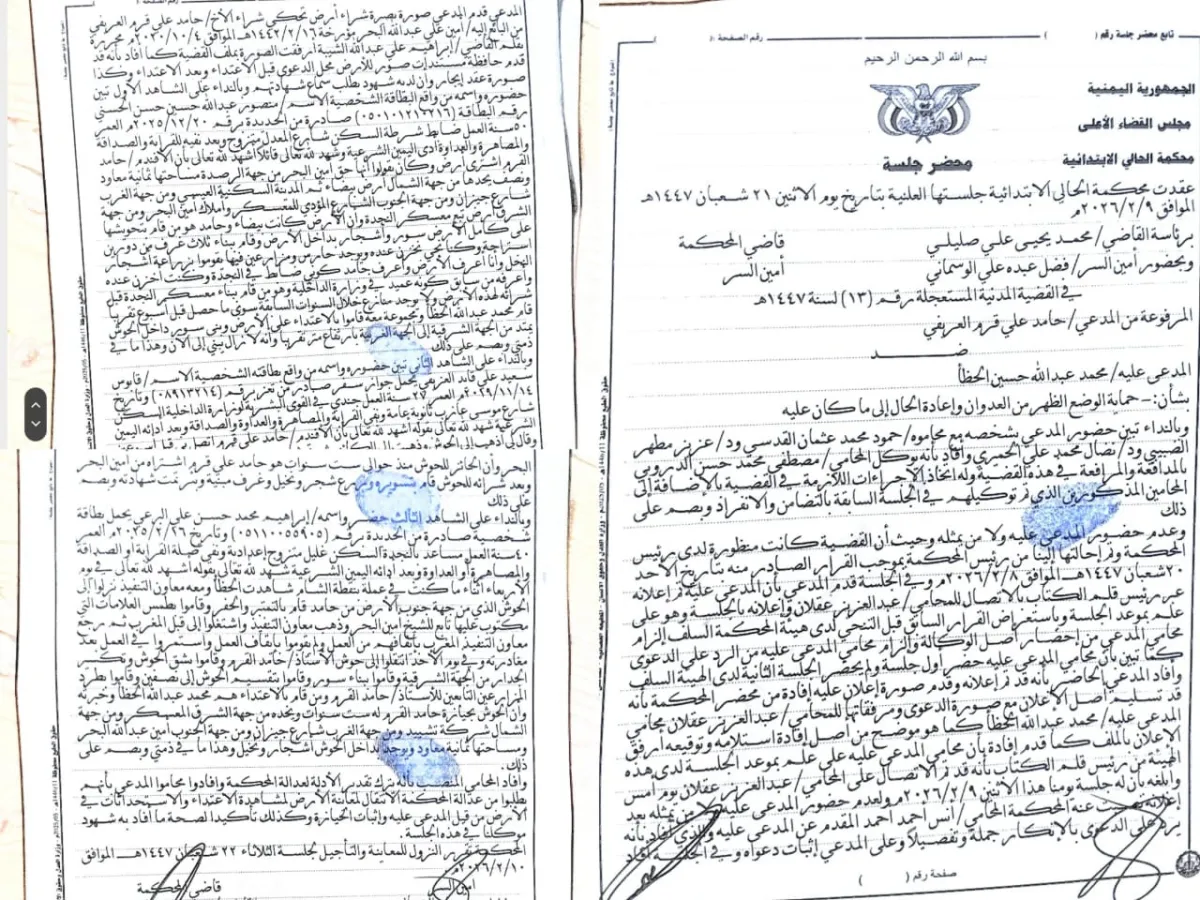 تابع محضر جلسة رقم ( )
رقم الصفحة :(
بسم الله الرحمن الرحيم
الجمهورية اليمنية
مجلس القضاء الأعلى
محكمة الحالي الابتدائية
محضر جلسة
عقدت محكمة الحالي الابتدائية جلستها العلنية بتاريخ يوم الاثنين ٢١ شعبان ١٤٤٧هـ
الموافق ٢٠٢٦/٢/٩م
برئاسة القاضي/ محمد يحيى علي صليلي قاضي المحكمة
وبحضور أمين السر/ فضل عبده علي الوسماني أمين السر
في القضية المدنية المستعجلة رقم (١٣) لسنة ١٤٤٧هـ
المرفوعة من المدعي/ حامد علي قرم العريفي
ضد
المدعى عليه/ محمد عبدالله حسين الحظأ
بشأن:- حماية الوضع الظهر من العدوان وإعادة الحال إلى ما كان عليه
وبالنداء تبين حضور المدعي بشخصه مع محاموه/ حمود محمد عثمان القدسي ود/ عزيز مطهر
الضبيبي ود/ نضال محمد علي الحميري وأفاد بأنه يوكل المحامي/ مصطفى محمد حسن الدروبي
بالمدافعة والمرافعة في هذه القضية وله اتخاذ الإجراءات اللازمة في القضية بالإضافة إلى
المحامين المذكورين الذي تم توكيلهم في الجلسة السابقة بالتضامن والانفراد وبصم على
ذلك
وعدم حضور المدعى عليه ولا من يمثله وحيث أن القضية كانت منظورة لدى رئيس
المحكمة وتم إحالتها إلينا من رئيس المحكمة بموجب القرار الصادر منه بتاريخ الأحد
٢٠ شعبان ١٤٤٧هـ الموافق ٢٠٢٦/٢/٨م وفي الجلسة قدم المدعي بأن المدعى عليه تم إعلانه
عبر رئيس قلم الكتاب بالاتصال للمحامي/ عبدالعزيز عقلان وإعلانه بالجلسة وهو على
علم بموعد الجلسة وباستعراض القرار السابق قبل التنحي لدى هيئة المحكمة السلف إلزام
محامي المدعي من إحضار أصل الوكالة وإلزام محامي المدعى عليه من الرد على الدعوى
كما تبين بأن محامي المدعى عليه حضر أول جلسة ولم يحضر الجلسة الثانية لدى الهيئة السلف
وأفاد المدعي الحاضر بأنه قد تم إعلانه وقدم صورة إعلان عليه إفادة من محضر المحكمة بأنه
قد تسليم أصل الإعلان مع صورة الدعوى ومرفقاتها للمحامي/ عبدالعزيز عقلان محامي
المدعى عليه/ محمد عبدالله الحظأ كما هو موضح من أصل إفادة استلامه وتوقيعه أرفق
الإعلان بالملف كما قدم إفادة بأن محامي المدعى عليه على علم بموعد الجلسة لدى هذه
الهيئة من رئيس قلم الكتاب بأنه قد تم الاتصال على المحامي/ عبدالعزيز عقلان يوم أمس
وأبلغه بأن له جلسة يومنا هذا الاثنين ٢٠٢٦/٢/٩م ولعدم حضور المدعى عليه ولا من يمثله بعد
إعلانه عنه المحكمة المحامي/ أنس أحمد أحمد المقدم عن المدعى عليه والذي أفاد بأنه
يرد على الدعوى بالإنكار جملة وتفصيلا وعلى المدعي إثبات دعواه وفي الجلسة أفاد
صفحة رقم ( )
المدعي قدم المدعي صورة بصيرة شراء أرض تحكي شراء الأخ/ حامد علي قرم العريفي
من البائع إليه/ أمين علي عبدالله البحر بؤرخة ١٤٤٢/٢/١٦هـ الموافق ٢٠٢٠/١٠/٤م محررة
بقلم القاضي/ إبراهيم علي عبدالله الشيبة أرفقت الصورة بملف القضية كما أفاد بأنه قد
قدم حافظة مستندات صور للأرض محل الدعوى قبل الاعتداء وبعد الاعتداء وكذا
صورة عقد إيجار وأن لديه شهود يطلب سماع شهادتهم وبالنداء على الشاهد الأول تبين
حضوره واسمه من واقع البطاقة الشخصية الاسم/ منصور عبدالله حسين حسن الحسني
رقم البطاقة (٠٥٠١٠١٢١٢٢١٦) صادرة من الحديدة برقم ٢٠٢٥/١٢/٢٠م العمر
٥٠ سنة العمل ضابط شرطة السكن شارع المعدل متزوج وبعد نفيه للقرابة والصداقة
والمصاهرة والعداوة أدى اليمين الشرعية وشهد لله تعالى قائلا أشهد لله تعالى بأن الأفندم/ حامد
القرم اشترى أرض وكان يقولوا أنها حق أمين البحر من جهة الرصدة مساحتها ثمانية معاود
ونصف يحدها من جهة الشمال أرض بيضاء ثم المدينة السكنية العبيسي ومن جهة الغرب
شارع جيزان ومن جهة الجنوب الشارع المؤدي للمعسكر وأملاك أمين البحر ومن جهة
الشرق أرض تبع معسكر النجدة وأن الأرض كانت بيضاء وحامد هو من قام بتحويشها
على كامل الأرض سور وأشجار بداخل الأرض وقام ببناء ثلاث غرف من دورين
استراحة وكنا نجي نخزن عنده ويوجد حارس ومزارعين فيها يقوموا بزراعة أشجار
النخل وأنا أعرف الأرض وأعرف حامد كوني ضابط في النجدة وكنت أخزن عنده
وأعرفه من سابق كونه عميد في وزارة الداخلية وهو من قام ببناء معسكر النجدة قبل
شرائه لهذه الأرض ولا يوجد منازع خلال السنوات السابقة سوى ما حصل قبل أسبوع تقريبا
قام محمد عبدالله الحظأ ومجموعة معه قاموا بالاعتداء على الأرض وبنى سور داخل الحوش
يمتد من الجهة الشرقية إلى الجهة الغربية بارتفاع متر تقريبا وأنه لا زال يبني إلى الآن وهذا ما في
ذمتي وبصم على ذلك
وبالنداء على الشاهد الثاني تبين حضوره واسمه من واقع بطاقته الشخصية الاسم/ قابوس
سعيد علي قايد العزيقي يحمل جواز سفر صادر من تعز برقم (٠٨٩١٣٢١٤) وتاريخ
٢٠٢٩/١١/١٤م العمر ٢٧ سنة العمل جندي في القوى البشرية لوزارة الداخلية السكن
شارع موسى عازب ثانوية عامة ونفي القرابة والمصاهرة والعداوة والصداقة وبعد أدائه اليمين
الشرعية شهد لله تعالى بقوله أشهد لله تعالى بأن الأفندم/ حامد علي قرم
البحر وأن الحائز للحوش منذ حوالي ست سنوات هو حامد علي قرم اشتراه من أمين البحر
وبعد شرائه للحوش قام بتسويره وزرع شجر ونخيل وغرف مبنية وتمت شهادته وبصم
على ذلك
وبالنداء على الشاهد الثالث حضر واسمه/ إبراهيم محمد حسن علي البرعي يحمل بطاقة
شخصية صادرة من الحديدة برقم (٠٥١١٠٠٥٥٩٠٥) وتاريخ ٢٠٣٥/٢/٢٦م العمر
٤٠ سنة العمل مساعد بالنجدة السكن غليل متزوج إعدادية ونفي صلة القرابة أو الصداقة
والمصاهرة أو العداوة وبعد أدائه اليمين الشرعية شهد لله تعالى بقوله أشهد لله تعالى في يوم
الأربعاء أثناء ما كنت في عملة بنقطة الشام شاهدت الحظأ ومعه معاون التنفيذ نزلوا إلى
الحوش الذي من جهة جنوب الأرض من حامد قام بالتمتير والحفر وقاموا بطمس العلامات التي
مكتوب عليها تابع للشيخ أمين البحر وذهب معاون التنفيذ واشتغلوا إلى قبل المغرب ثم رجع
معاون التنفيذ المغرب بإيقافهم من العمل ولم يقوموا بإيقاف العمل واستمروا في العمل بعد
مغادرته وفي يوم الأحد انتقلوا إلى حوش الأستاذ/ حامد القرم وقاموا بشق الحوش وتكسر
الجدار من الجهة الشرقية وقاموا بناء سور وقاموا بتقسيم الحوش إلى نصفين وقاموا بطرد
المزارعين التابعين للأستاذ/ حامد القرم ومن قام بالاعتداء هم محمد عبدالله الحظأ وخبرته
وأن الحوش بحيازة حامد القرم له ست سنوات ويحده من جهة الشرق المعسكر ومن جهة
الشمال شركة تشييد ومن جهة الغرب شارع جيزان ومن جهة الجنوب أمين عبدالله البحر
ومساحتها ثمانية معاود ويوجد بداخل الحوش أشجار ونخيل وهذا ما في ذمتي وبصم على
ذلك.
وأفاد المحامي المنصب بأنه يترك تقدير الأدلة لعدالة المحكمة وأفادوا محاموا المدعي بأنهم
يطلبوا من عدالة المحكمة الانتقال لمعاينة الأرض لمشاهدة الاعتداء والاستحداثات في
الأرض من قبل المدعى عليه وإثبات الحيازة وكذلك تأكيدا لصحة ما أفاد به شهود
موكلنا في هذه الجلسة.
المحكمة تقرر النزول للمعاينة والتأجيل لجلسة الثلاثاء ٢٢ شعبان ١٤٤٧هـ الموافق
٢٠٢٦/٢/١٠م
أمين السر قاضي المحكمة